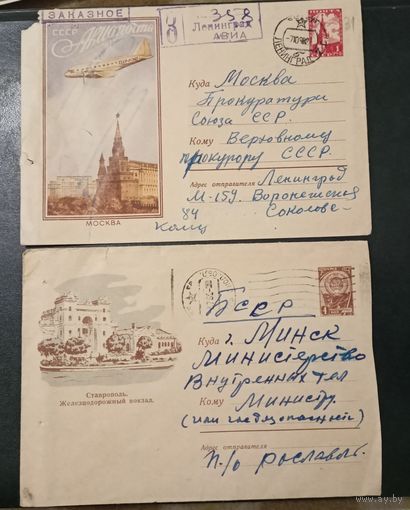 ЗАКАЗНОЕ
СССР Авиапочта
З 358
Ленинград
АВИА
ЛЕНИНГРАД
1
МОСКВА
Куда Москва
Прокуратури
Союза ССР.
Кому Верховному
прокурору СССР.
Адрес отправителя Ленинград
М-159. Воронежская
84 Соколове-
Ставрополь.
Железнодорожный вокзал.
БССР
Куда г. Минск
Министерство
Внутренных дел
Кому Министру
(или госбезопасность)
Адрес отправителя
п/о рославль
www.ay.by